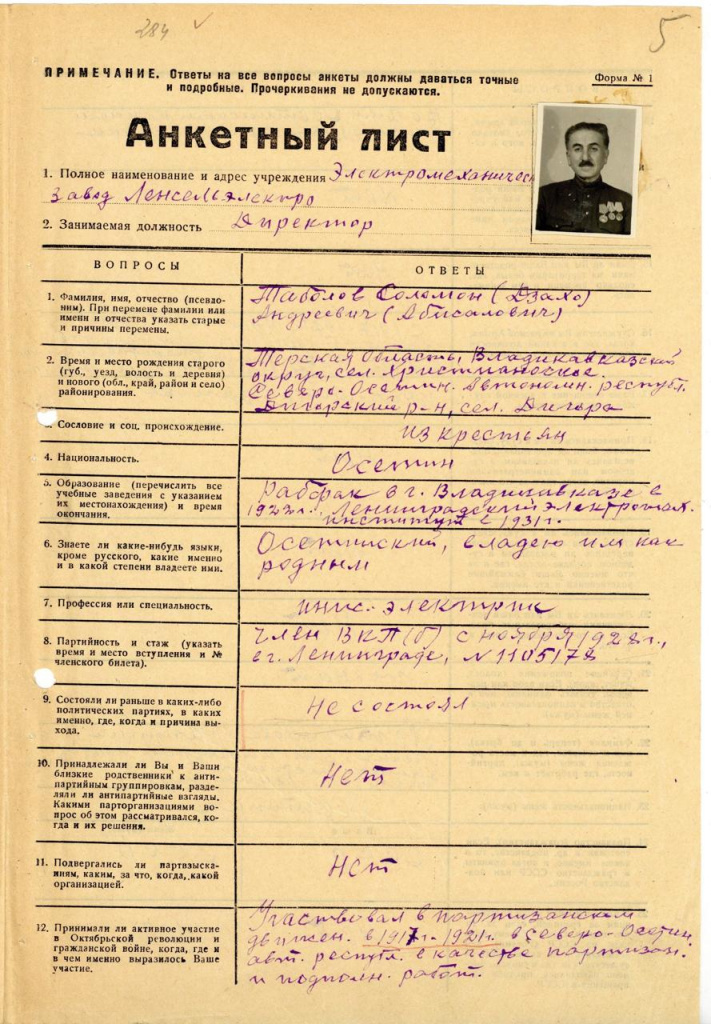 284
5
ПРИМЕЧАНИЕ. Ответы на все вопросы анкеты должны даваться точные
и подробные. Прочеркивания не допускаются.
Форма № 1
Анкетный лист
1. Полное наименование и адрес учреждения Электромеханическ
завод Ленсельэлектро
2. Занимаемая должность Директор
ВОПРОСЫ
ОТВЕТЫ
1. Фамилия, имя, отчество (псевдо-
ним). При перемене фамилии или
имени и отчества указать старые
и причины перемены.
Таболов Соломон (Дзахо)
Андреевич (Абисалович)
2. Время и место рождения старого
(губ., уезд, волость и деревня)
и нового (обл., край, район и село)
районирования.
Терская область, Владикавказский
округ, сел. Христиановское.
Северо-Осетин. Автономн. республ.
Дигорский р-н, сел. Дигора
Сословие и соц. происхождение.
из крестьян
4. Национальность.
Осетин
5. Образование (перечислить все
учебные заведения с указанием
их местонахождения) и время
окончания.
Рабфак в г. Владикавказе в
Ленинградский электромех.
институт в 1931г.
6. Знаете ли какие-нибудь языки,
кроме русского, какие именно
и в какой степени владеете ими.
Осетинский, владею им как
родным
7. Профессия или специальность.
инж.-электрик
8. Партийность и стаж (указать
время и место вступления и №
членского билета).
член ВКП(б) с ноября 1928г.,
в г. Ленинграде, № 1105178
9. Состояли ли раньше в каких-либо
политических партиях, в каких
именно, где, когда и причина вы-
хода.
Не состоял
10. Принадлежали ли Вы и Ваши
близкие родственники к анти-
партийным группировкам, разде-
ляли ли антипартийные взгляды.
Какими парторганизациями во-
прос об этом рассматривался, ко-
гда и их решения.
Нет
11. Подвергались ли партвзыска-
ниям, каким, за что, когда, какой
организацией.
Нет
12. Принимали ли активное участие
в Октябрьской революции и
гражданской войне, когда, где и
в чем именно выразилось Ваше
участие.
Участвовал в партизанском
движен. в 1917г-1921г. в Северо-Осетин.
авт. республ. в качестве партизан.
и подполн. работ.